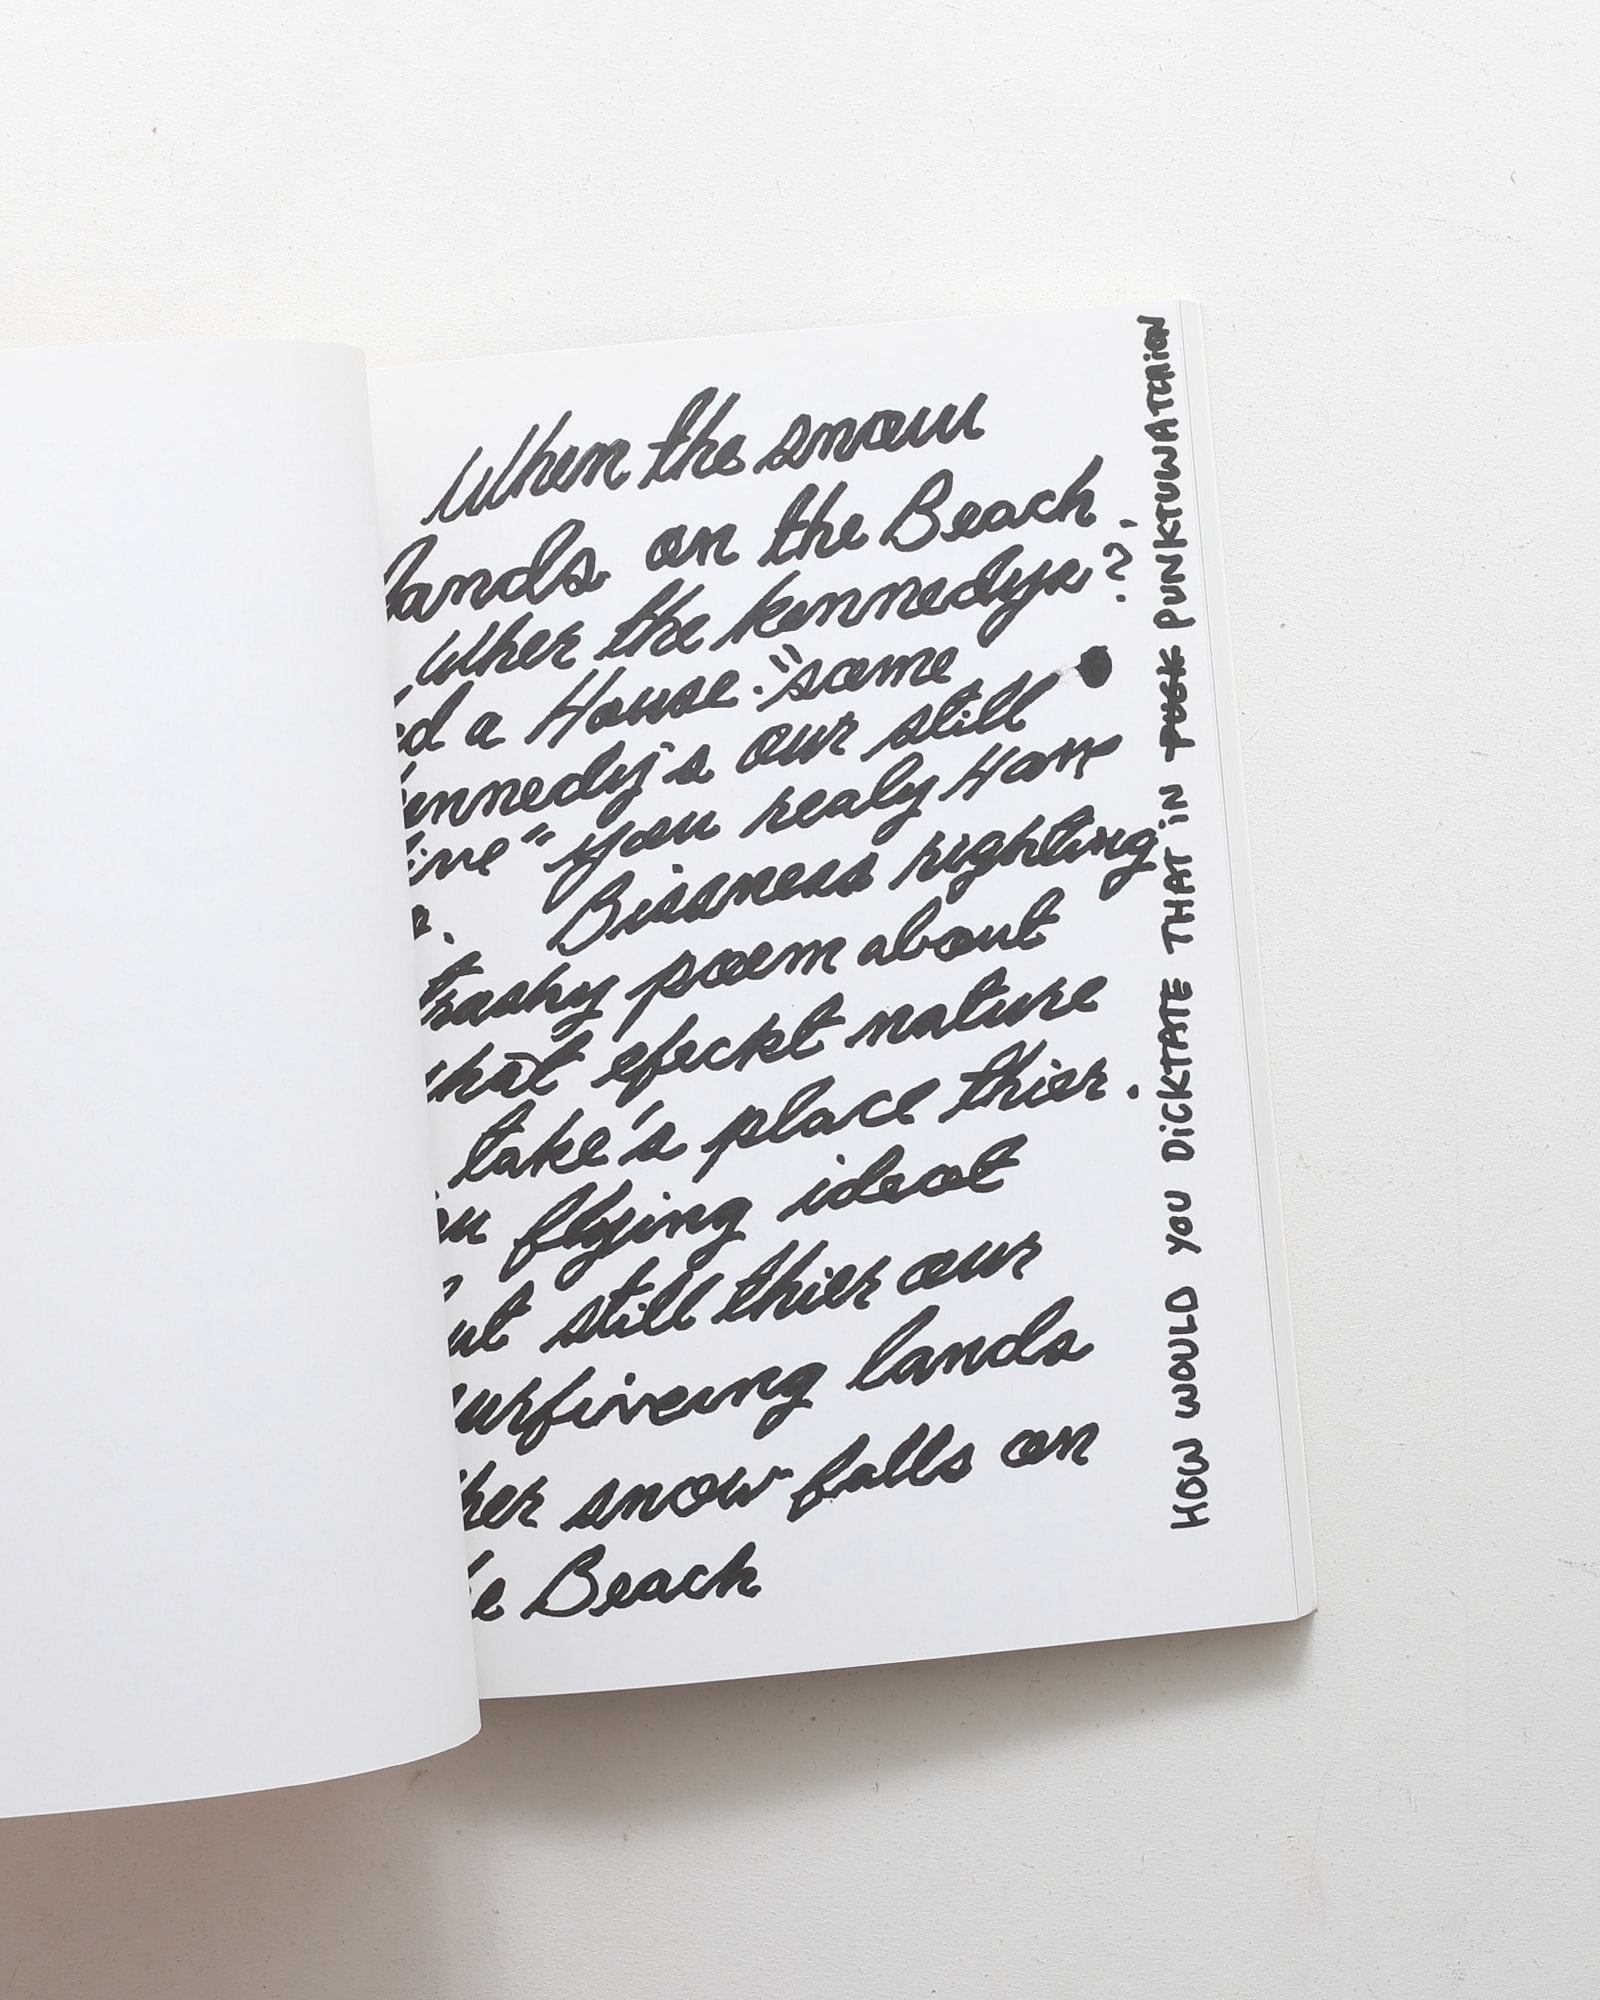 When the snow
lands on the Beach
Wher the kennedys?
ed a House. "some
ennedy's our still
ive" you realy Hav
e. Bissness righting
trashy poem about
what efeckt nature
take's place thier.
ou flying ideot
but still thier our
urfiveing lands
her snow falls on
he Beach
HOW WOULD YOU DiCKTATE THAT iN PUNKTUWATCHiON